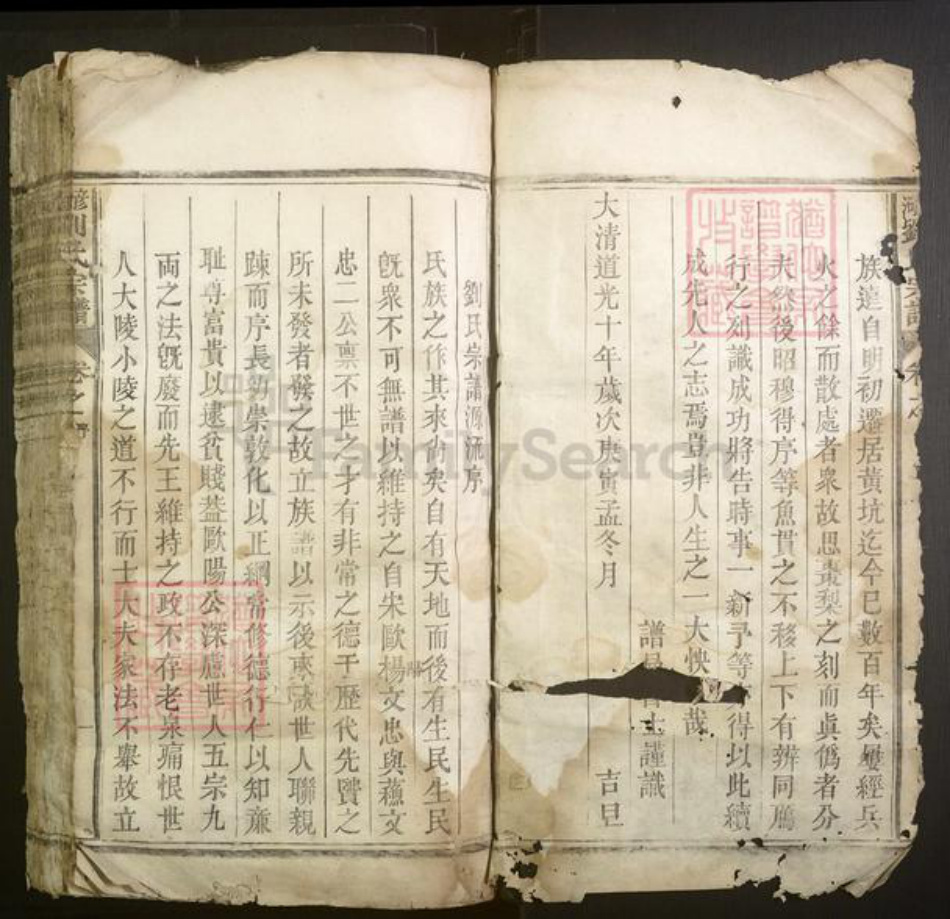 族達自明初遷居黃坑迄今已數百年矣屢經兵
火之餘而散處者衆故思棗梨之刻而眞偽者分
夫然後昭穆得序等魚貫之不移上下有辨同鴈
行之列識成功將告時事一新予等得以此續
成先人之志焉豈非人生之一大快哉
譜 士謹識
大清道光十年歲次庚寅孟冬月 吉旦
劉氏宗譜源流序
氏族之作其來尚矣自有天地而後有生民生民
旣衆不可無譜以維持之自宋歐楊文忠與蘓文
忠二公禀不世之才有非常之德于歷代先賢之
所未發者發之故立族譜以示後來故世人聯親
踈而序長幼崇敦化以正綱常修德行仁以知亷
耻尊富貴以逮貧賤葢歐陽公深慮世人五宗九
兩之法旣廢而先王維持之政不存老泉痛恨世
人大陵小陵之道不行而士大夫家法不舉故立
劉氏宗譜 卷之 序
FamilySearch